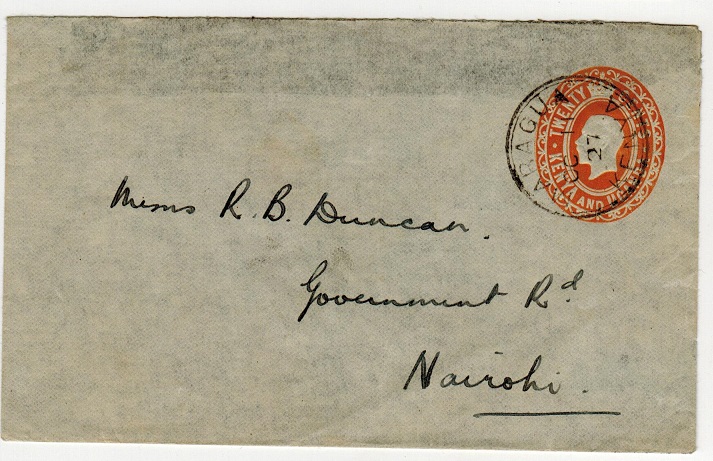 TWENTY
KENYA AND
ARAGUA
27
KENYA
Messrs R. B. Duncan.
Government Rd
Nairobi.